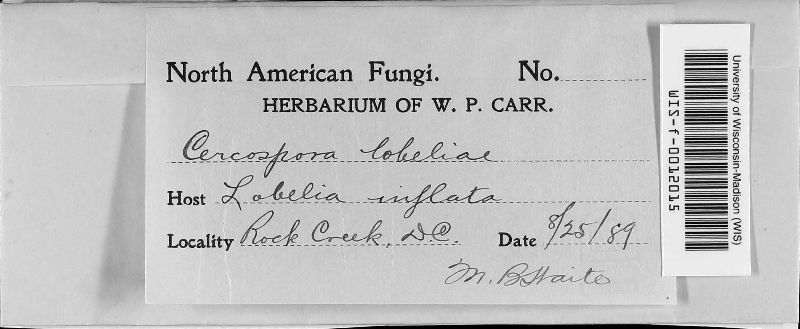 North American Fungi. No.
HERBARIUM OF W. P. CARR.
Cercospora lobeliae
Host Lobelia inflata
Locality Rock Creek, D.C. Date 8/25/89
M. B. Waite
University of Wisconsin-Madison (WIS)
WIS-f-0012015